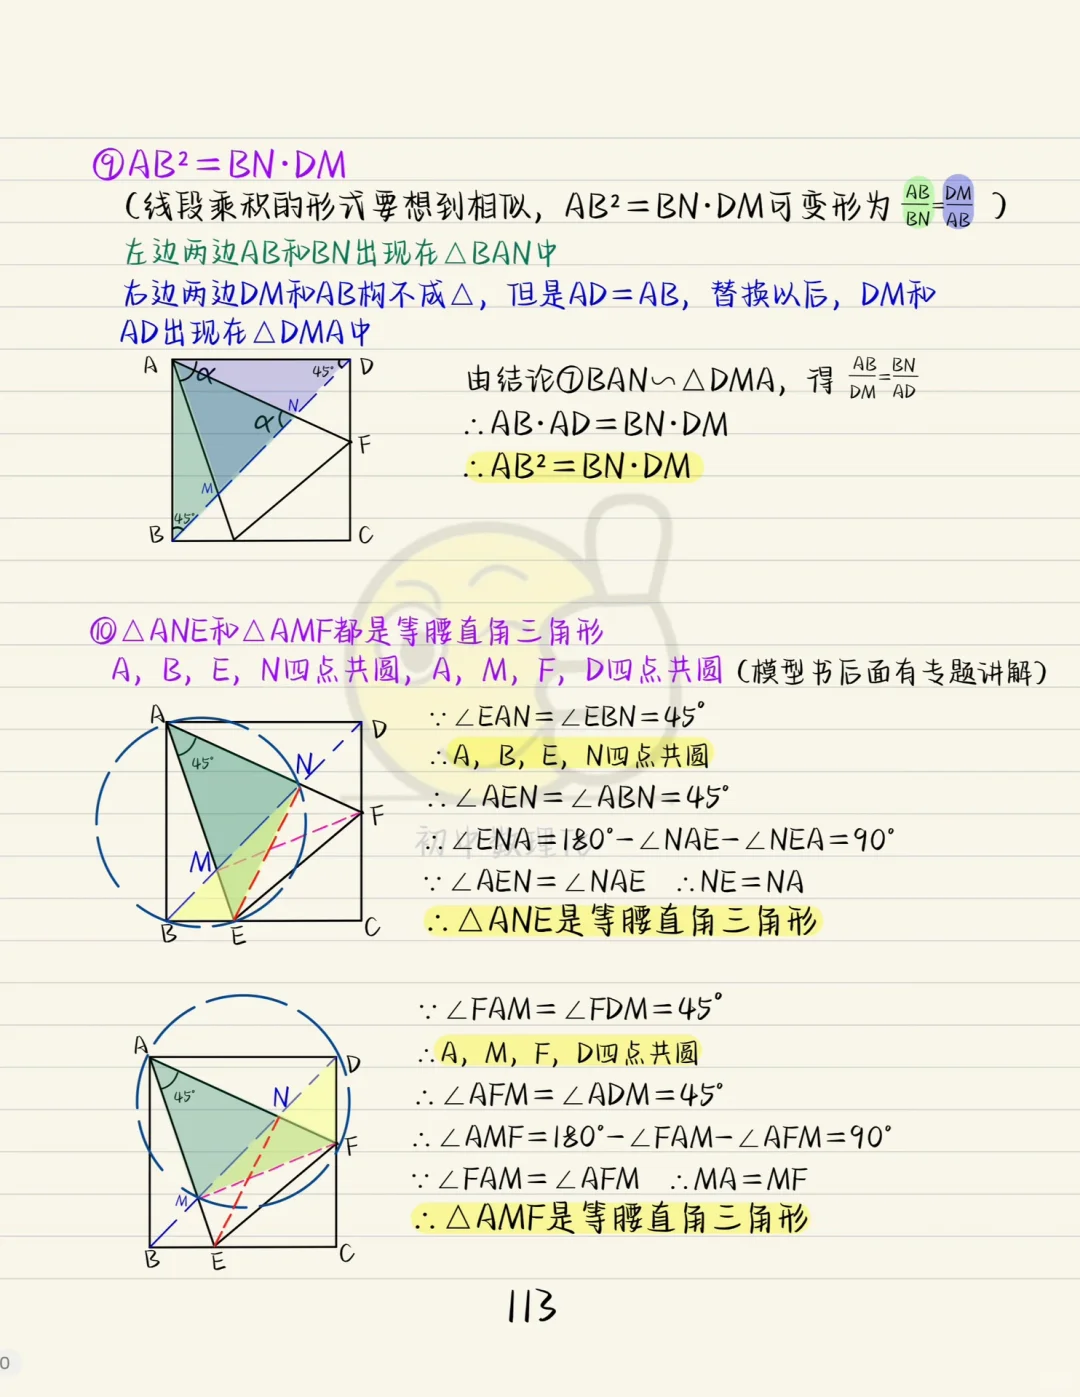 ⑨AB²=BN·DM
(线段乘积的形式要想到相似，AB²=BN·DM可变形为 AB/BN=DM/AB )
左边两边AB和BN出现在△BAN中
右边两边DM和AB构不成△，但是AD=AB，替换以后，DM和
AD出现在△DMA中
A α 45° D
N
α
F
M
45°
B C
由结论⑦BAN∽△DMA，得 AB/DM=BN/AD
∴AB·AD=BN·DM
∴AB²=BN·DM
⑩△ANE和△AMF都是等腰直角三角形
A，B，E，N四点共圆，A，M，F，D四点共圆(模型书后面有专题讲解)
A D
45° N
F
M
B E C
∵∠EAN=∠EBN=45°
∴A，B，E，N四点共圆
∴∠AEN=∠ABN=45°
∴∠ENA=180°-∠NAE-∠NEA=90°
∵∠AEN=∠NAE ∴NE=NA
∴△ANE是等腰直角三角形
A D
45° N
F
M
B E C
∵∠FAM=∠FDM=45°
∴A，M，F，D四点共圆
∴∠AFM=∠ADM=45°
∴∠AMF=180°-∠FAM-∠AFM=90°
∵∠FAM=∠AFM ∴MA=MF
∴△AMF是等腰直角三角形
113
0